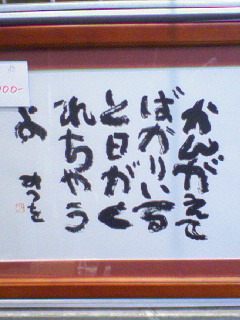 かんがえて
ばかりいる
と日がく
れちゃう
よ
みつを
00-